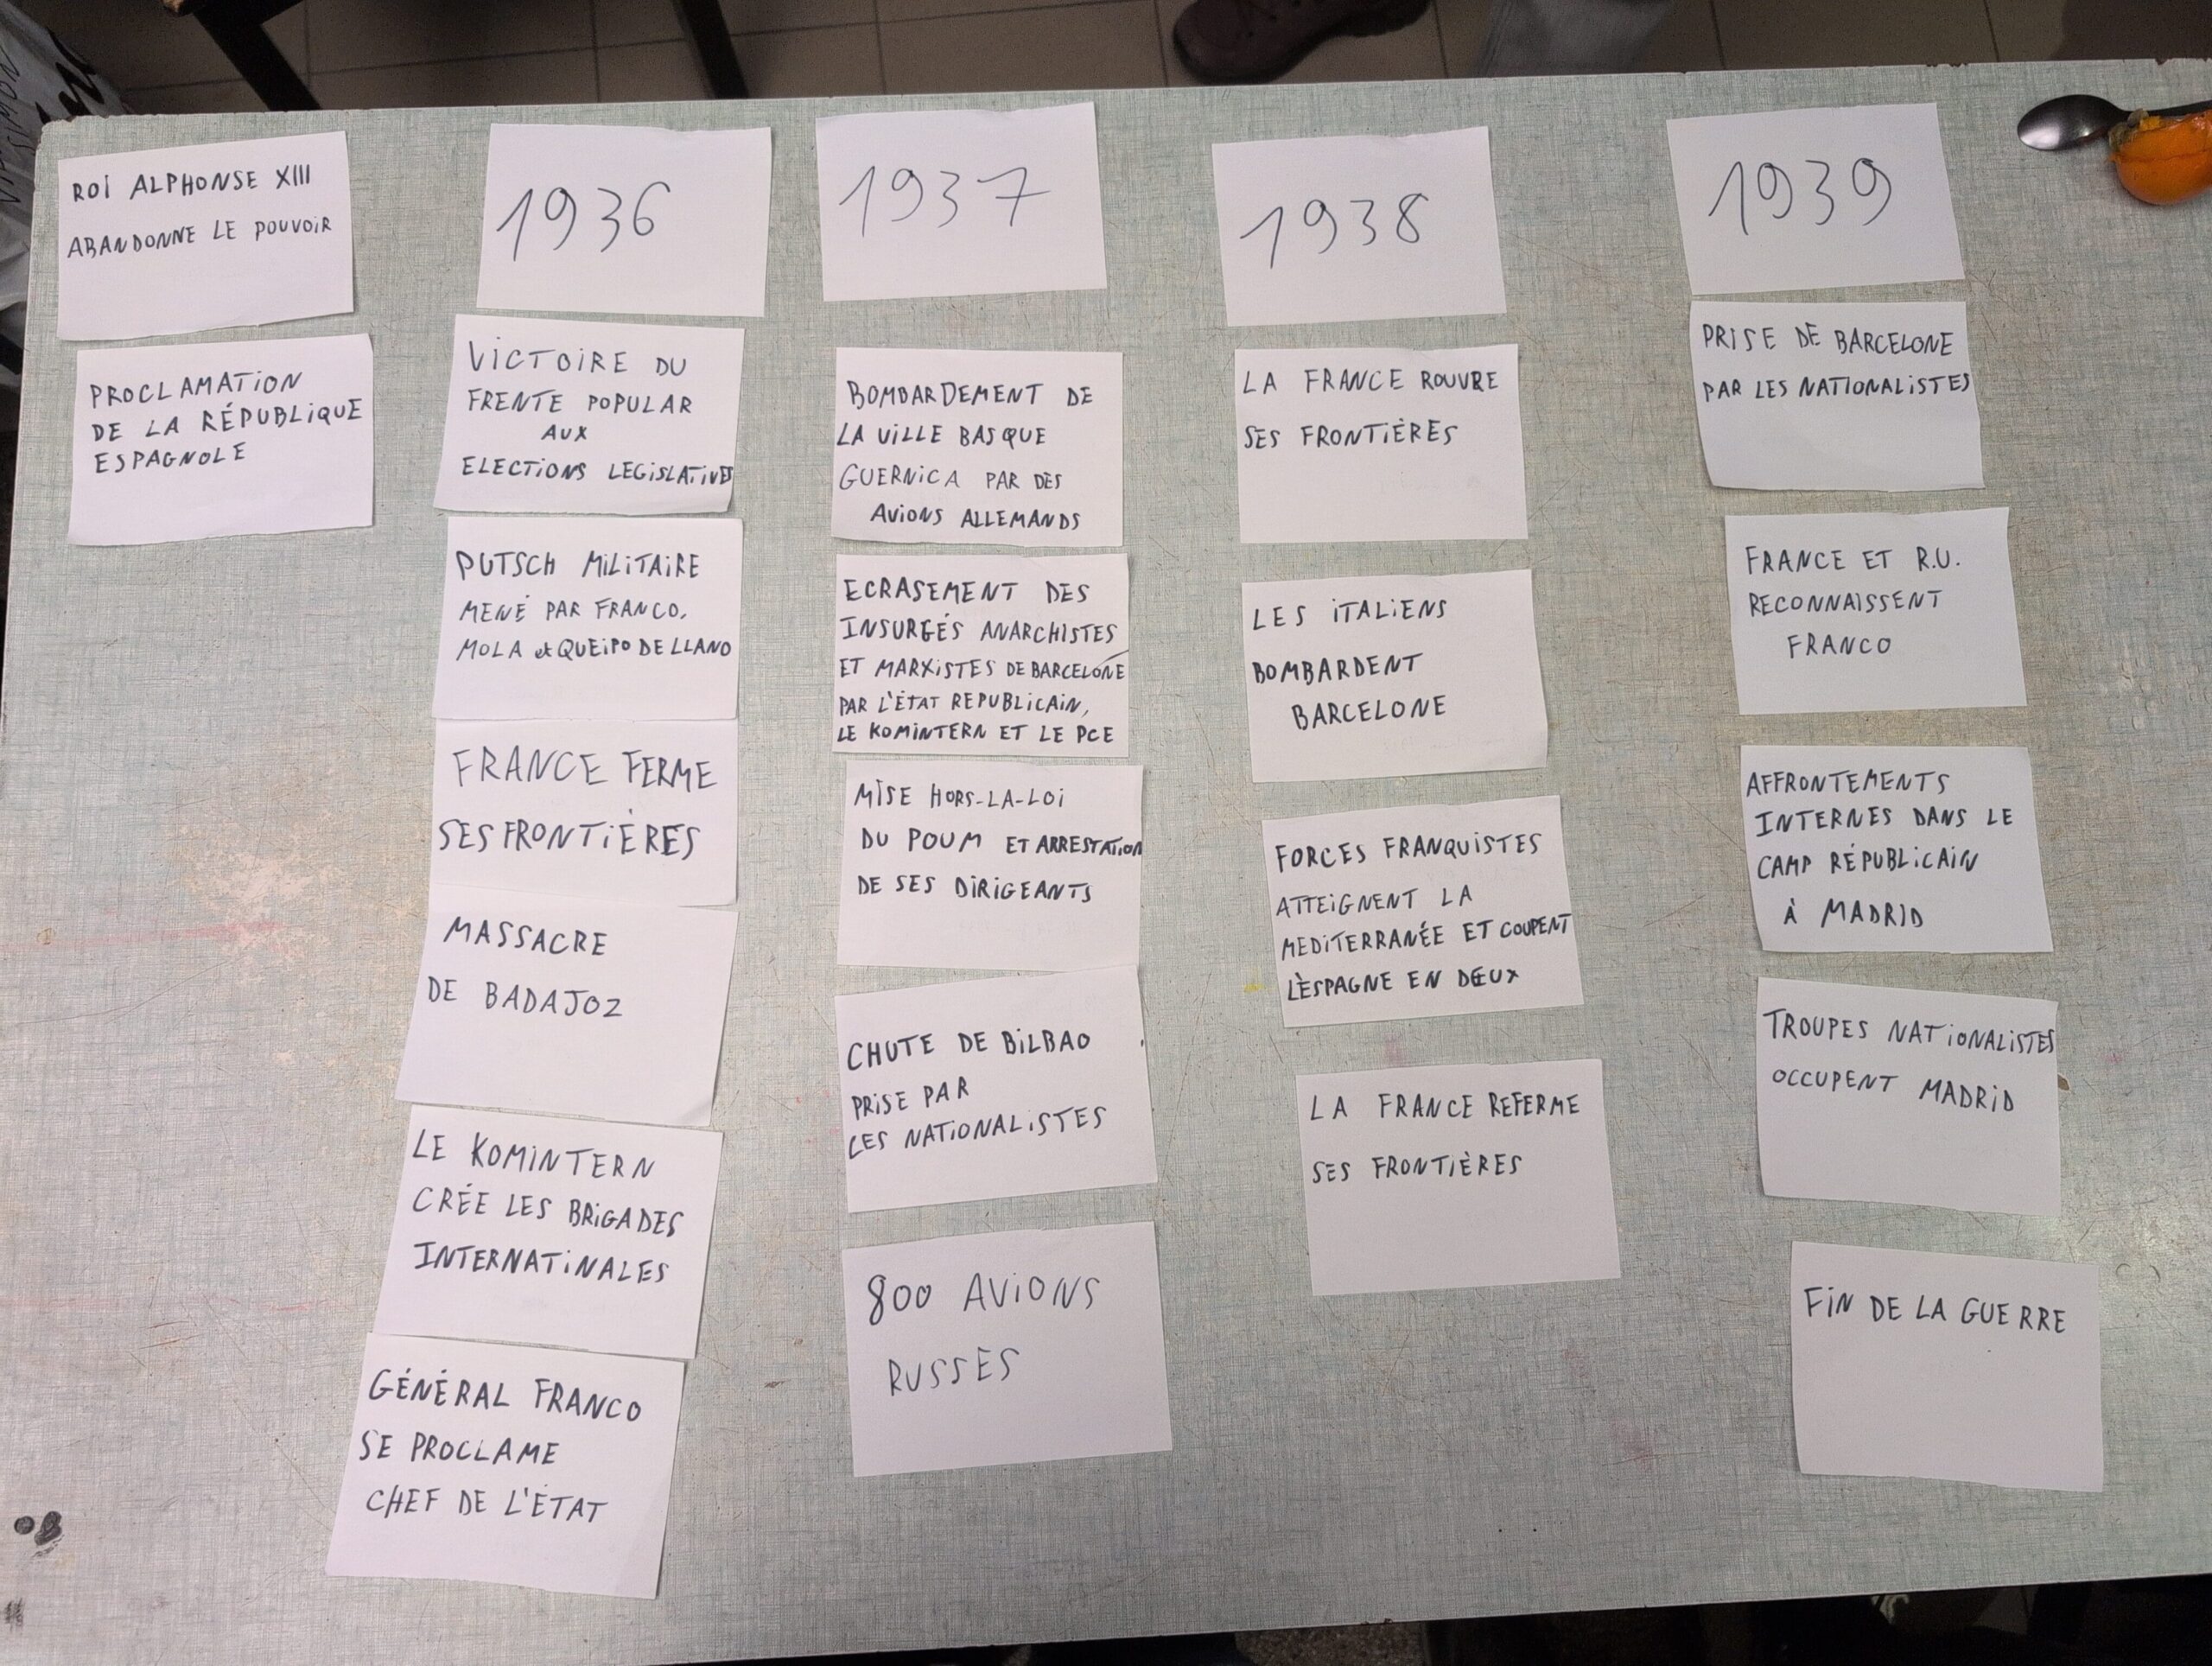 ROI ALPHONSE XIII
ABANDONNE LE POUVOIR
PROCLAMATION
DE LA RÉPUBLIQUE
ESPAGNOLE
1936
VICTOIRE DU
FRENTE POPULAR
AUX
ELECTIONS LEGISLATIVES
PUTSCH MILITAIRE
MENÉ PAR FRANCO,
MOLA et QUEIPO DE LLANO
FRANCE FERME
SES FRONTIÈRES
MASSACRE
DE BADAJOZ
LE KOMINTERN
CRÉE LES BRIGADES
INTERNATINALES
GÉNÉRAL FRANCO
SE PROCLAME
CHEF DE L'ÉTAT
1937
BOMBARDEMENT DE
LA VILLE BASQUE
GUERNICA PAR DES
AVIONS ALLEMANDS
ECRASEMENT DES
INSURGÉS ANARCHISTES
ET MARXISTES DE BARCELONE
PAR L'ÉTAT REPUBLICAIN,
LE KOMINTERN ET LE PCE
MISE HORS-LA-LOI
DU POUM ET ARRESTATION
DE SES DIRIGEANTS
CHUTE DE BILBAO
PRISE PAR
LES NATIONALISTES
800 AVIONS
RUSSES
1938
LA FRANCE ROUVRE
SES FRONTIÈRES
LES ITALIENS
BOMBARDENT
BARCELONE
FORCES FRANQUISTES
ATTEIGNENT LA
MEDITERRANÉE ET COUPENT
L'ESPAGNE EN DEUX
LA FRANCE REFERME
SES FRONTIÈRES
1939
PRISE DE BARCELONE
PAR LES NATIONALISTES
FRANCE ET R.U.
RECONNAISSENT
FRANCO
AFFRONTEMENTS
INTERNES DANS LE
CAMP RÉPUBLICAIN
À MADRID
TROUPES NATIONALISTES
OCCUPENT MADRID
FIN DE LA GUERRE